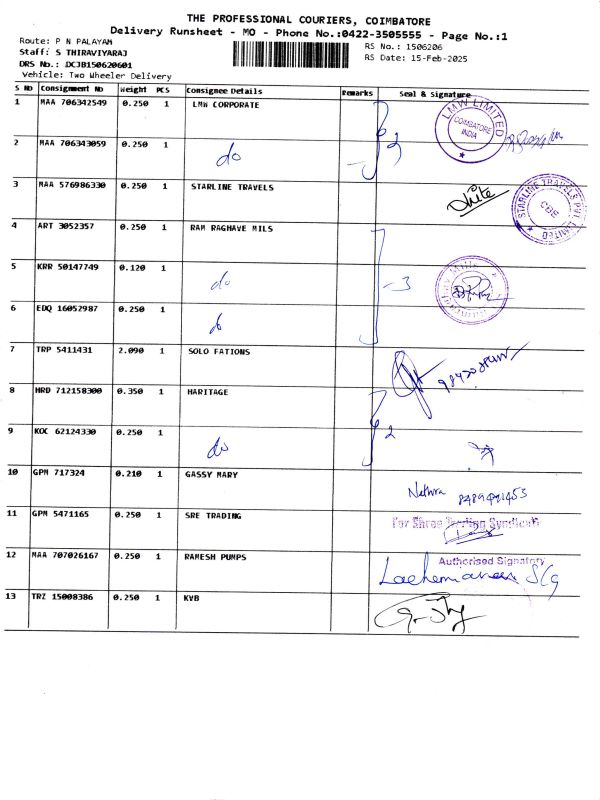 THE PROFESSIONAL COURIERS, COIMBATORE
Delivery Runsheet - MO - Phone No.:0422-3505555 - Page No.:1
Route: P N PALAYAM
RS No.: 1506206
Staff: S THIRAVIYARAJ
RS Date: 15-Feb-2025
DRS No.: DCJB150620601
Vehicle: Two Wheeler Delivery
S No Consignment No Weight PCS Consignee Details Remarks Seal & Signature
1 MAA 706342549 0.250 1 LMW CORPORATE
LMW LIMITED
COIMBATORE
INDIA
2 MAA 706343059 0.250 1 do
2
3 MAA 576986330 0.250 1 STARLINE TRAVELS
STARLINE TRAVELS PVT LIMITED
CBE
4 ART 3052357 0.250 1 RAM RAGHAVE MILS
5 KRR 50147749 0.120 1 do
-3
6 EDQ 16052987 0.250 1 do
7 TRP 5411431 2.090 1 SOLO FATIONS
8 HRD 712158300 0.350 1 HARITAGE
9 KOC 62124330 0.250 1 do
2
10 GPM 717324 0.210 1 GASSY MARY
Nethra 8489491453
11 GPM 5471165 0.250 1 SRE TRADING
For Shree Trading Syndicate
12 MAA 707026167 0.250 1 RAMESH PUMPS
Authorised Signatory
13 TRZ 15008386 0.250 1 KVB